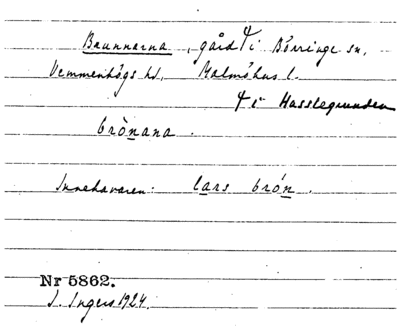 Brunnarna, gård 4 i Börringe sn,
Vemmenhögs hd, Malmöhus l.
4 i Hasslegrunden
brònana.
Innehavaren: lars brón.
Nr 5862.
I. Ingers 1924.